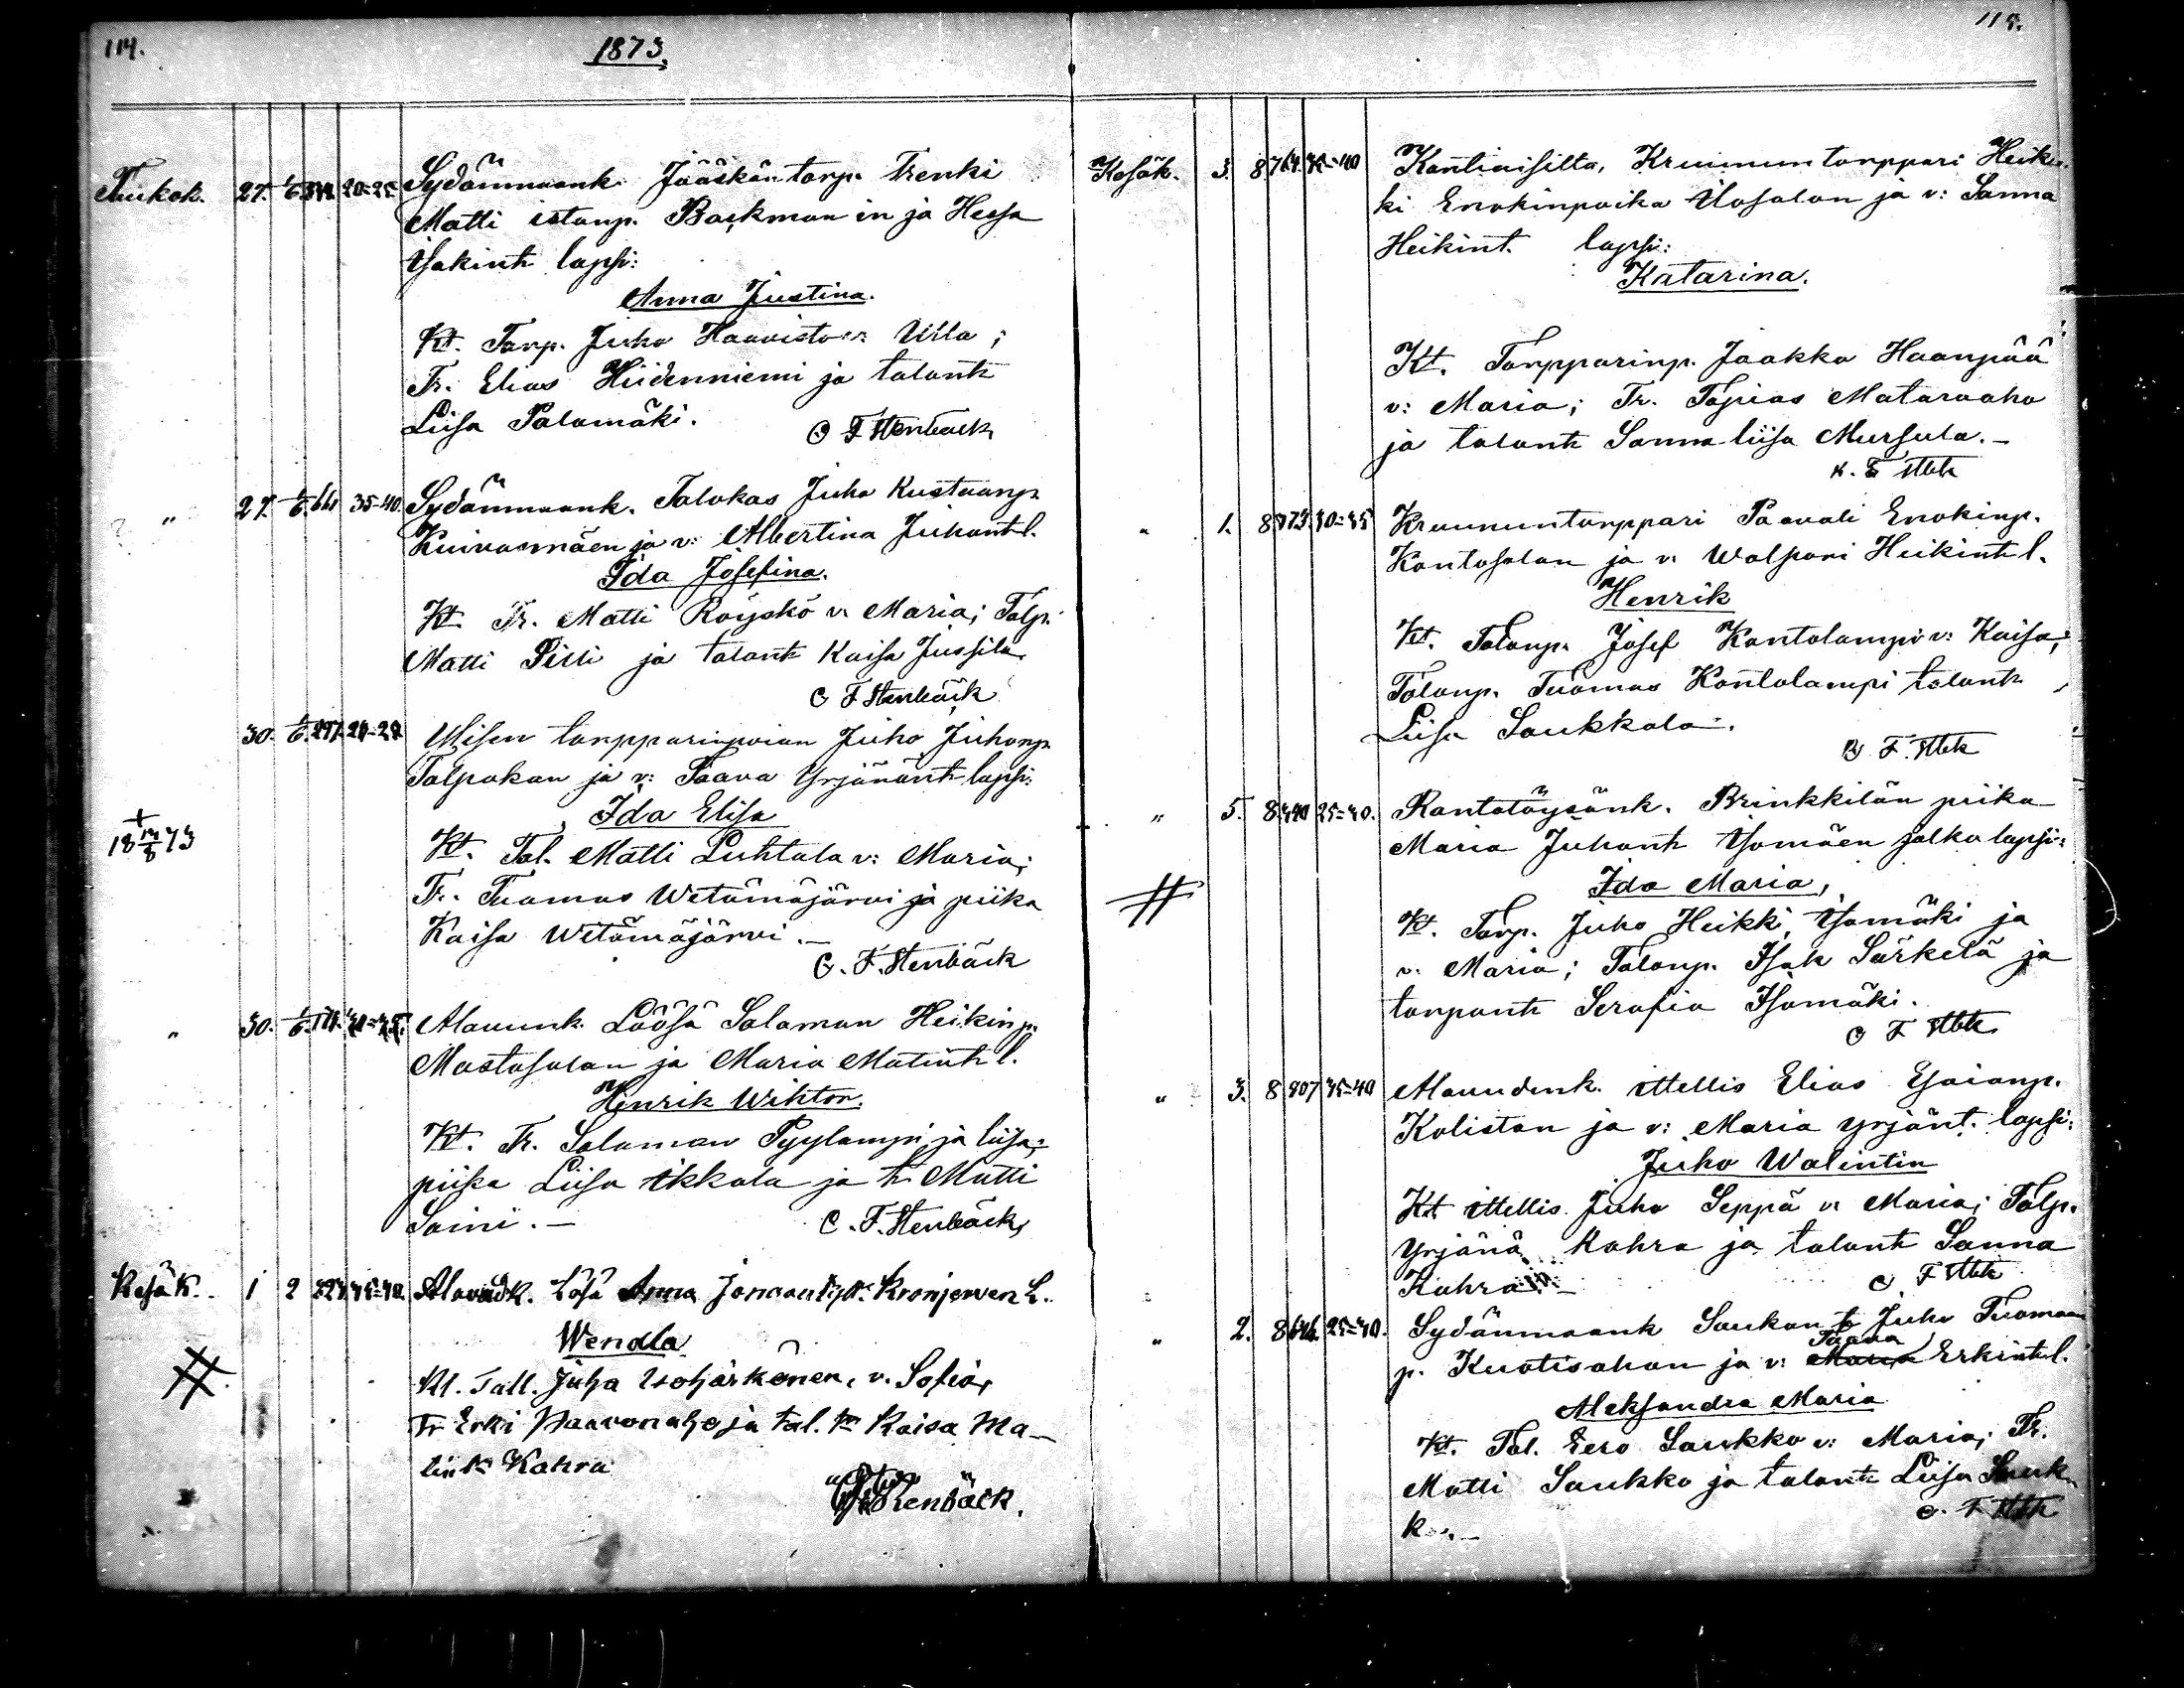 114.
1873.
Toukok. 27. 1/6. 20=25 Sydänmaank. Jääskän torp. Trenki
Matti istanp. Backman in ja Hessa
Isakint. lapsi:
Anna Justina.
Kt. Torp. Juho Haavisto v: Ulla;
Tr. Elias Hiidenniemi ja talont.
Liisa Palomäki.
C F Stenbäck
" 27. 1/6. 35-40. Sydänmaank. Talokas Juha Kustaanp.
Kuivasmäen ja v: Albertina Juhant. l.
Ida Josefina.
Kt. Tr. Matti Röyskö v. Maria; Talp.
Matti Pilli ja talont. Kaisa Jussila.
C F Stenbäck
30. 1/6. 297. torpparinpoian Juho Juhonp.
Talpakan ja v: Taava Yrjänänt. lapsi:
Ida Elisa
+ 18 14/8 73
Kt. Tal. Matti Luhtala v: Maria;
Tr. Tuomas Wetämäjärvi ja piika
Kaisa Wetämäjärvi.—
C. F. Stenbäck
" 30. 1/6. Alavunk. Löösä Salaman Heikinp.
Mastosalan ja Maria Matint. l.
Henrik Wihtor.
Kt. Tr. Salaman Pyylampi ja liisa;
piika Liisa Ikkala ja tr. Matti
Saini.—
C. F. Stenbäck,
Kesäk. 1 2 Alavudk. Lösä Anna Kronjerven L.
Wendla
Kt. Tall. Juha Isohärkönen, v. Sofia,
Tr Erki Paavonaho ja tal. tr Kaisa Ma-
tin tr Kahra
C F Stenbäck.
115.
Kesäk. 3. 8. 764. 35=40 Kontiaisilta, Kruunun torppari Heik-
ki Enokinpoika Uosalon ja v: Sanna
Heikint. lapsi:
Katarina.
Kt. Torpparinp. Jaakko Haanpää
v: Maria; Tr. Topias Mataraaho
ja talont. Sanna liisa Mursula.—
Stbk
" 1. 8 773. 40=45 Kruununtorppari Paavali Enokinp.
Kontosalan ja v. Walpori Heikint. l.
Henrik
Kt. Talonp. Josef Kontolampi v: Kaisa;
Talonp. Tuomas Kontolampi talont.
Liisa Saukkola.
C F. Stbk
" 5. 8. 440 25=40. Rantatöysänk. Brinkkilän piika
Maria Juhant. Isomäen salko lapsi:
Ida Maria,
Kt. Torp. Juho Heikki Isomäki ja
v. Maria; Talonp. Isak Särkelä ja
torpant. Serafia Isomäki.
C F Stbk
" 3. 8 807 35=40 Alavudenk. ittellis Elias Esaianp.
Koliston ja v: Maria Yrjänt. lapsi:
Juho Walintin
Kt. ittellis Juho Seppä v. Maria; Talp.
Yrjänä Kahra ja talont. Sanna
Kahra.—
C F Stbk
" 2. 8 646. 25=40. Sydänmaank. Saukon t. Juho Tuomaan
p. Kuotisahan ja v: Maria Taava Erkint. l.
Aleksandra Maria
Kt. Tal. Eero Saukko v: Maria; Tr.
Matti Saukko ja talont. Liisa Sauk-
ko.—
C. F Stbk